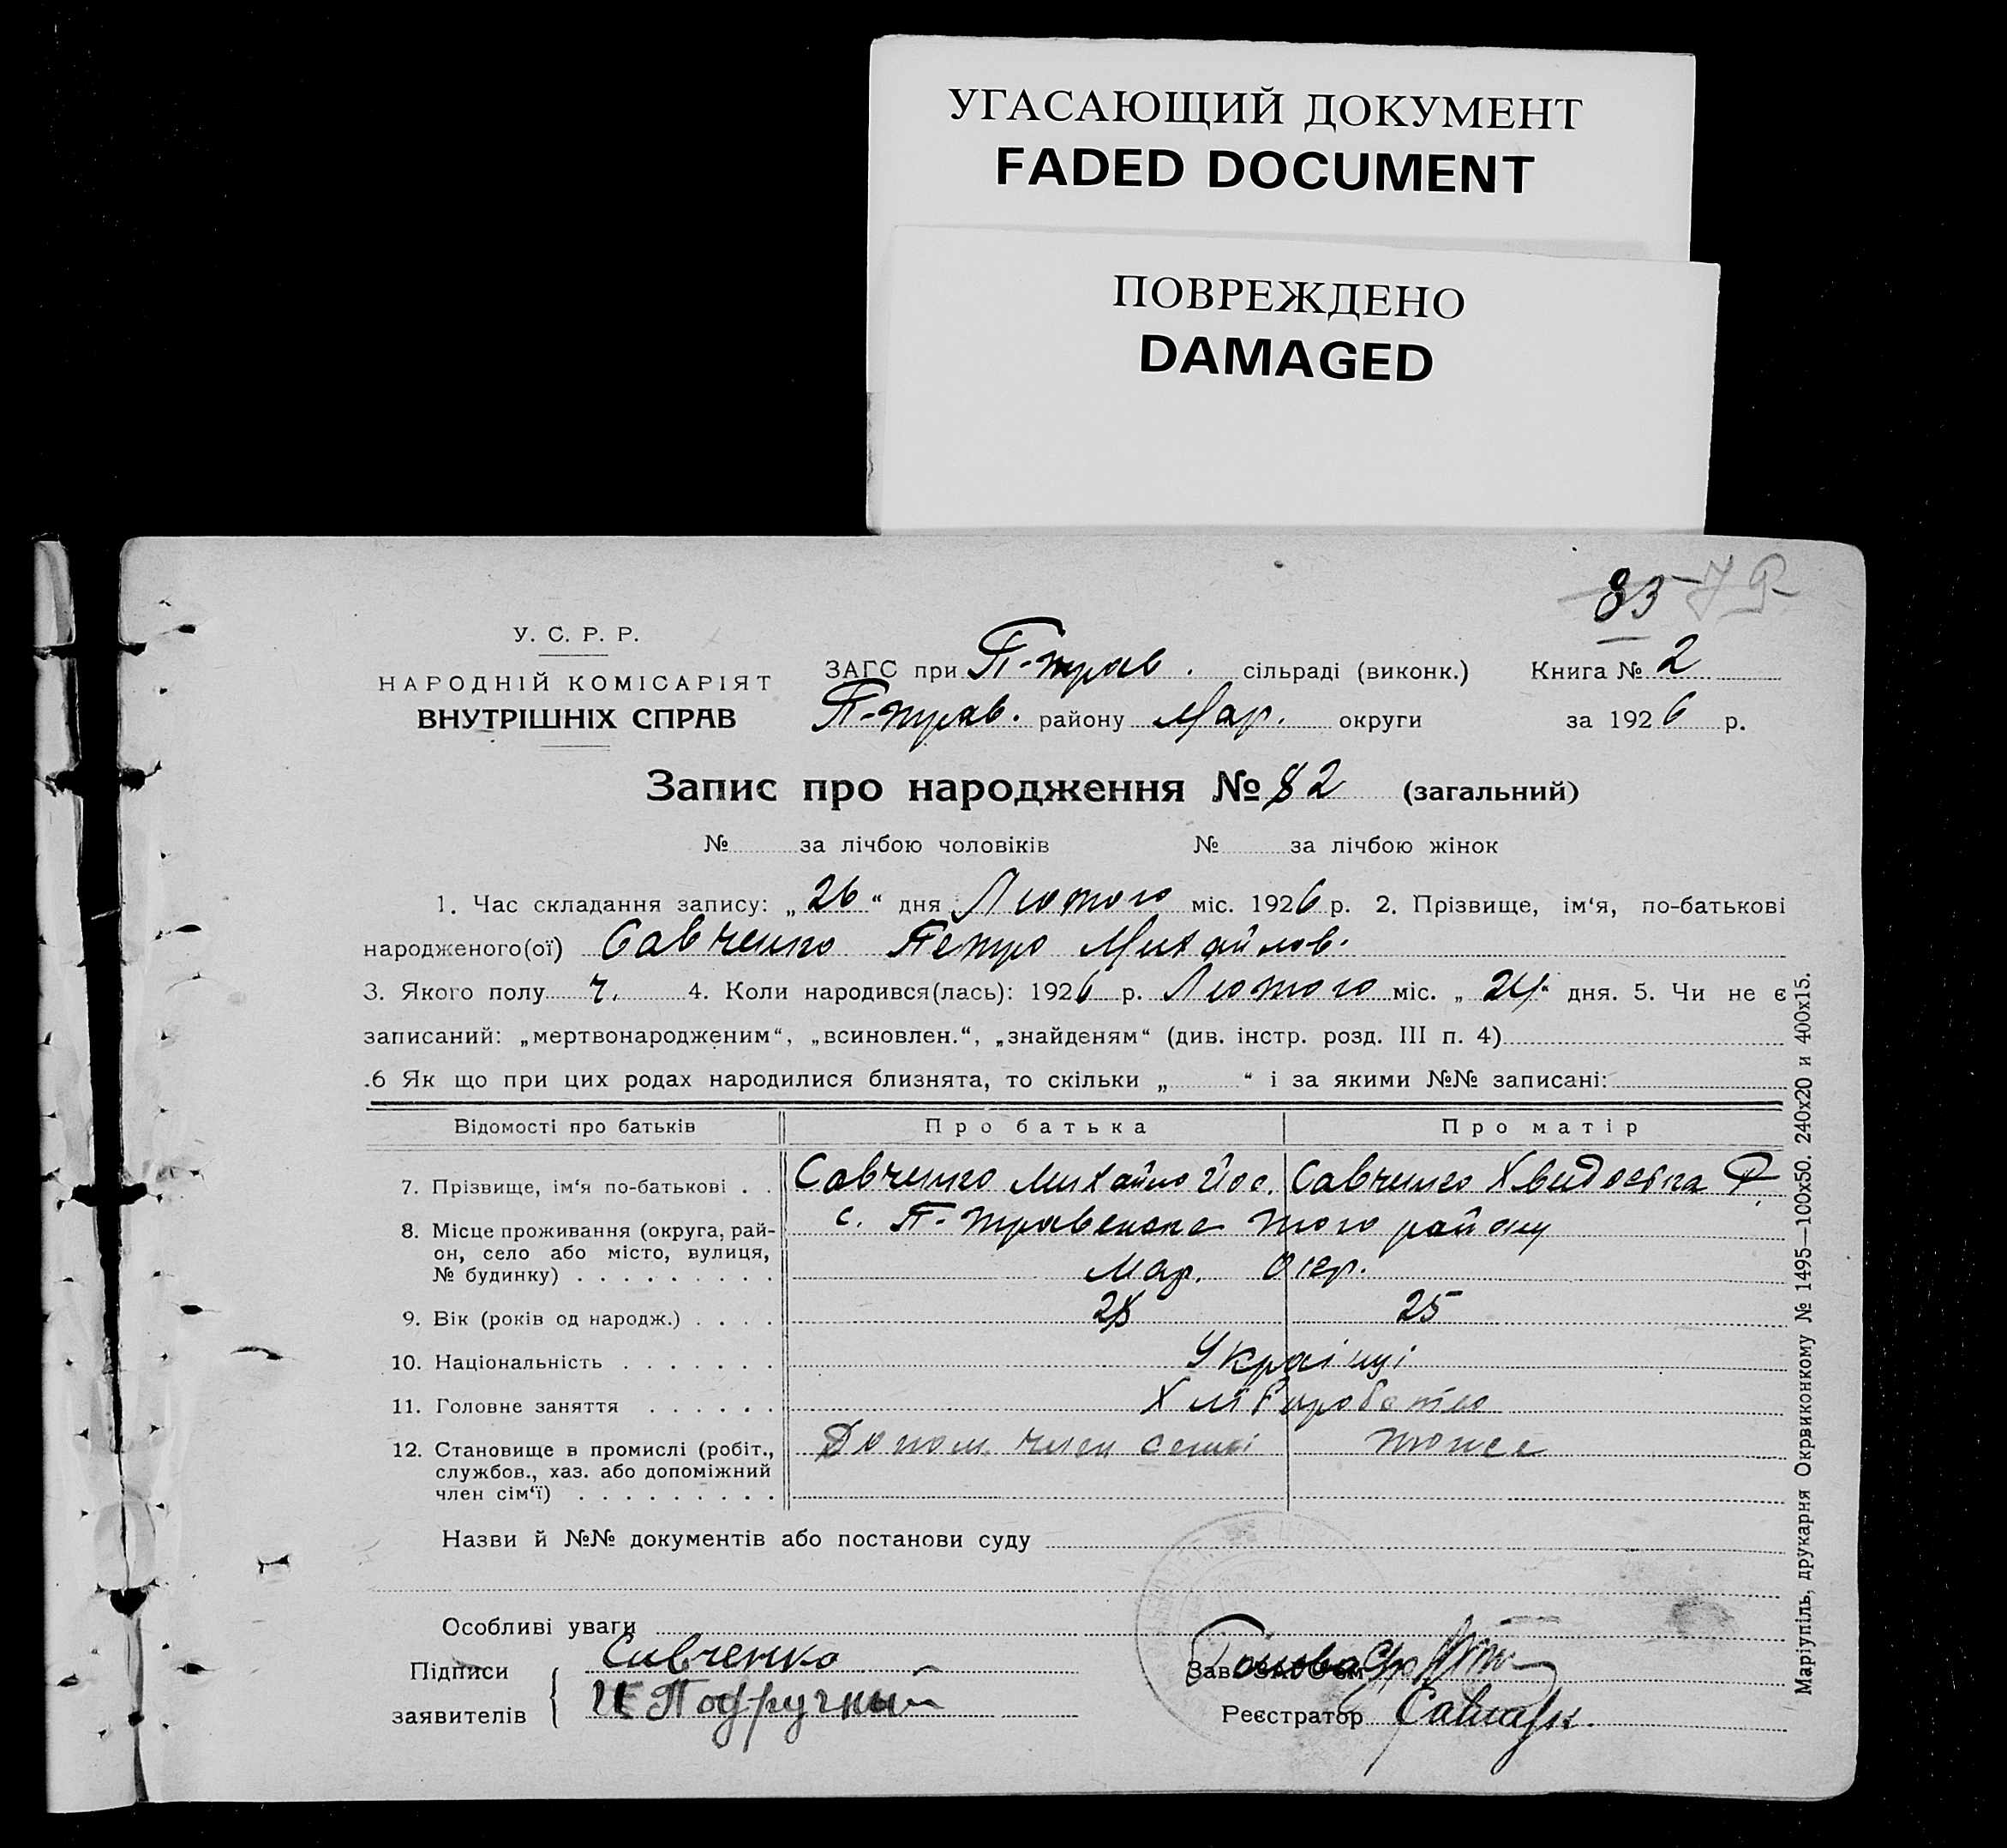 УГАСАЮЩИЙ ДОКУМЕНТ
FADED DOCUMENT
ПОВРЕЖДЕНО
DAMAGED
83
У. С. Р. Р.
НАРОДНІЙ КОМІСАРІЯТ
ВНУТРІШНІХ СПРАВ
ЗАГС при П-трав. сільраді (виконк.) Книга № 2
П-трав. району Мар. округи за 1926 р.
Запис про народження № 82 (загальний)
№ за лічбою чоловіків № за лічбою жінок
1. Час складання запису: „26“ дня Лютого міс. 1926 р. 2. Прізвище, ім‘я, по-батькові
народженого(ої) Савченко Петро Михайлов.
3. Якого полу ч. 4. Коли народився(лась): 1926 р. Лютого міс. „24“ дня. 5. Чи не є
записаний: „мертвонародженим“, „всиновлен.“, „знайденям“ (див. інстр. розд. III п. 4)
.6 Як що при цих родах народилися близнята, то скільки „ “ і за якими №№ записані:
Відомості про батьків Про батька Про матір
7. Прізвище, ім‘я по-батькові . . Савченко Михайло Йос. Савченко Хвидоська Ф.
8. Місце проживання (округа, рай-
он, село або місто, вулиця,
№ будинку) . . . . . . . . .
с. П-Травенське того району
Мар. Окр.
9. Вік (років од народж.) . . . . 28 25
10. Національність . . . . . . . Українці
11. Головне заняття . . . . . . Хліборобство
12. Становище в промислі (робіт.,
службов., хаз. або допоміжний
член сім‘ї) . . . . . . . . .
Допом. член семьі тоже
Назви й №№ документів або постанови суду
Особливі уваги
Підписи
заявителів
Савченко
И Подручный
Зав. ЗАГС'ом Голова
Реєстратор
Маріупіль, друкарня Окрвиконкому № 1495—100x50. 240x20 и 400x15.